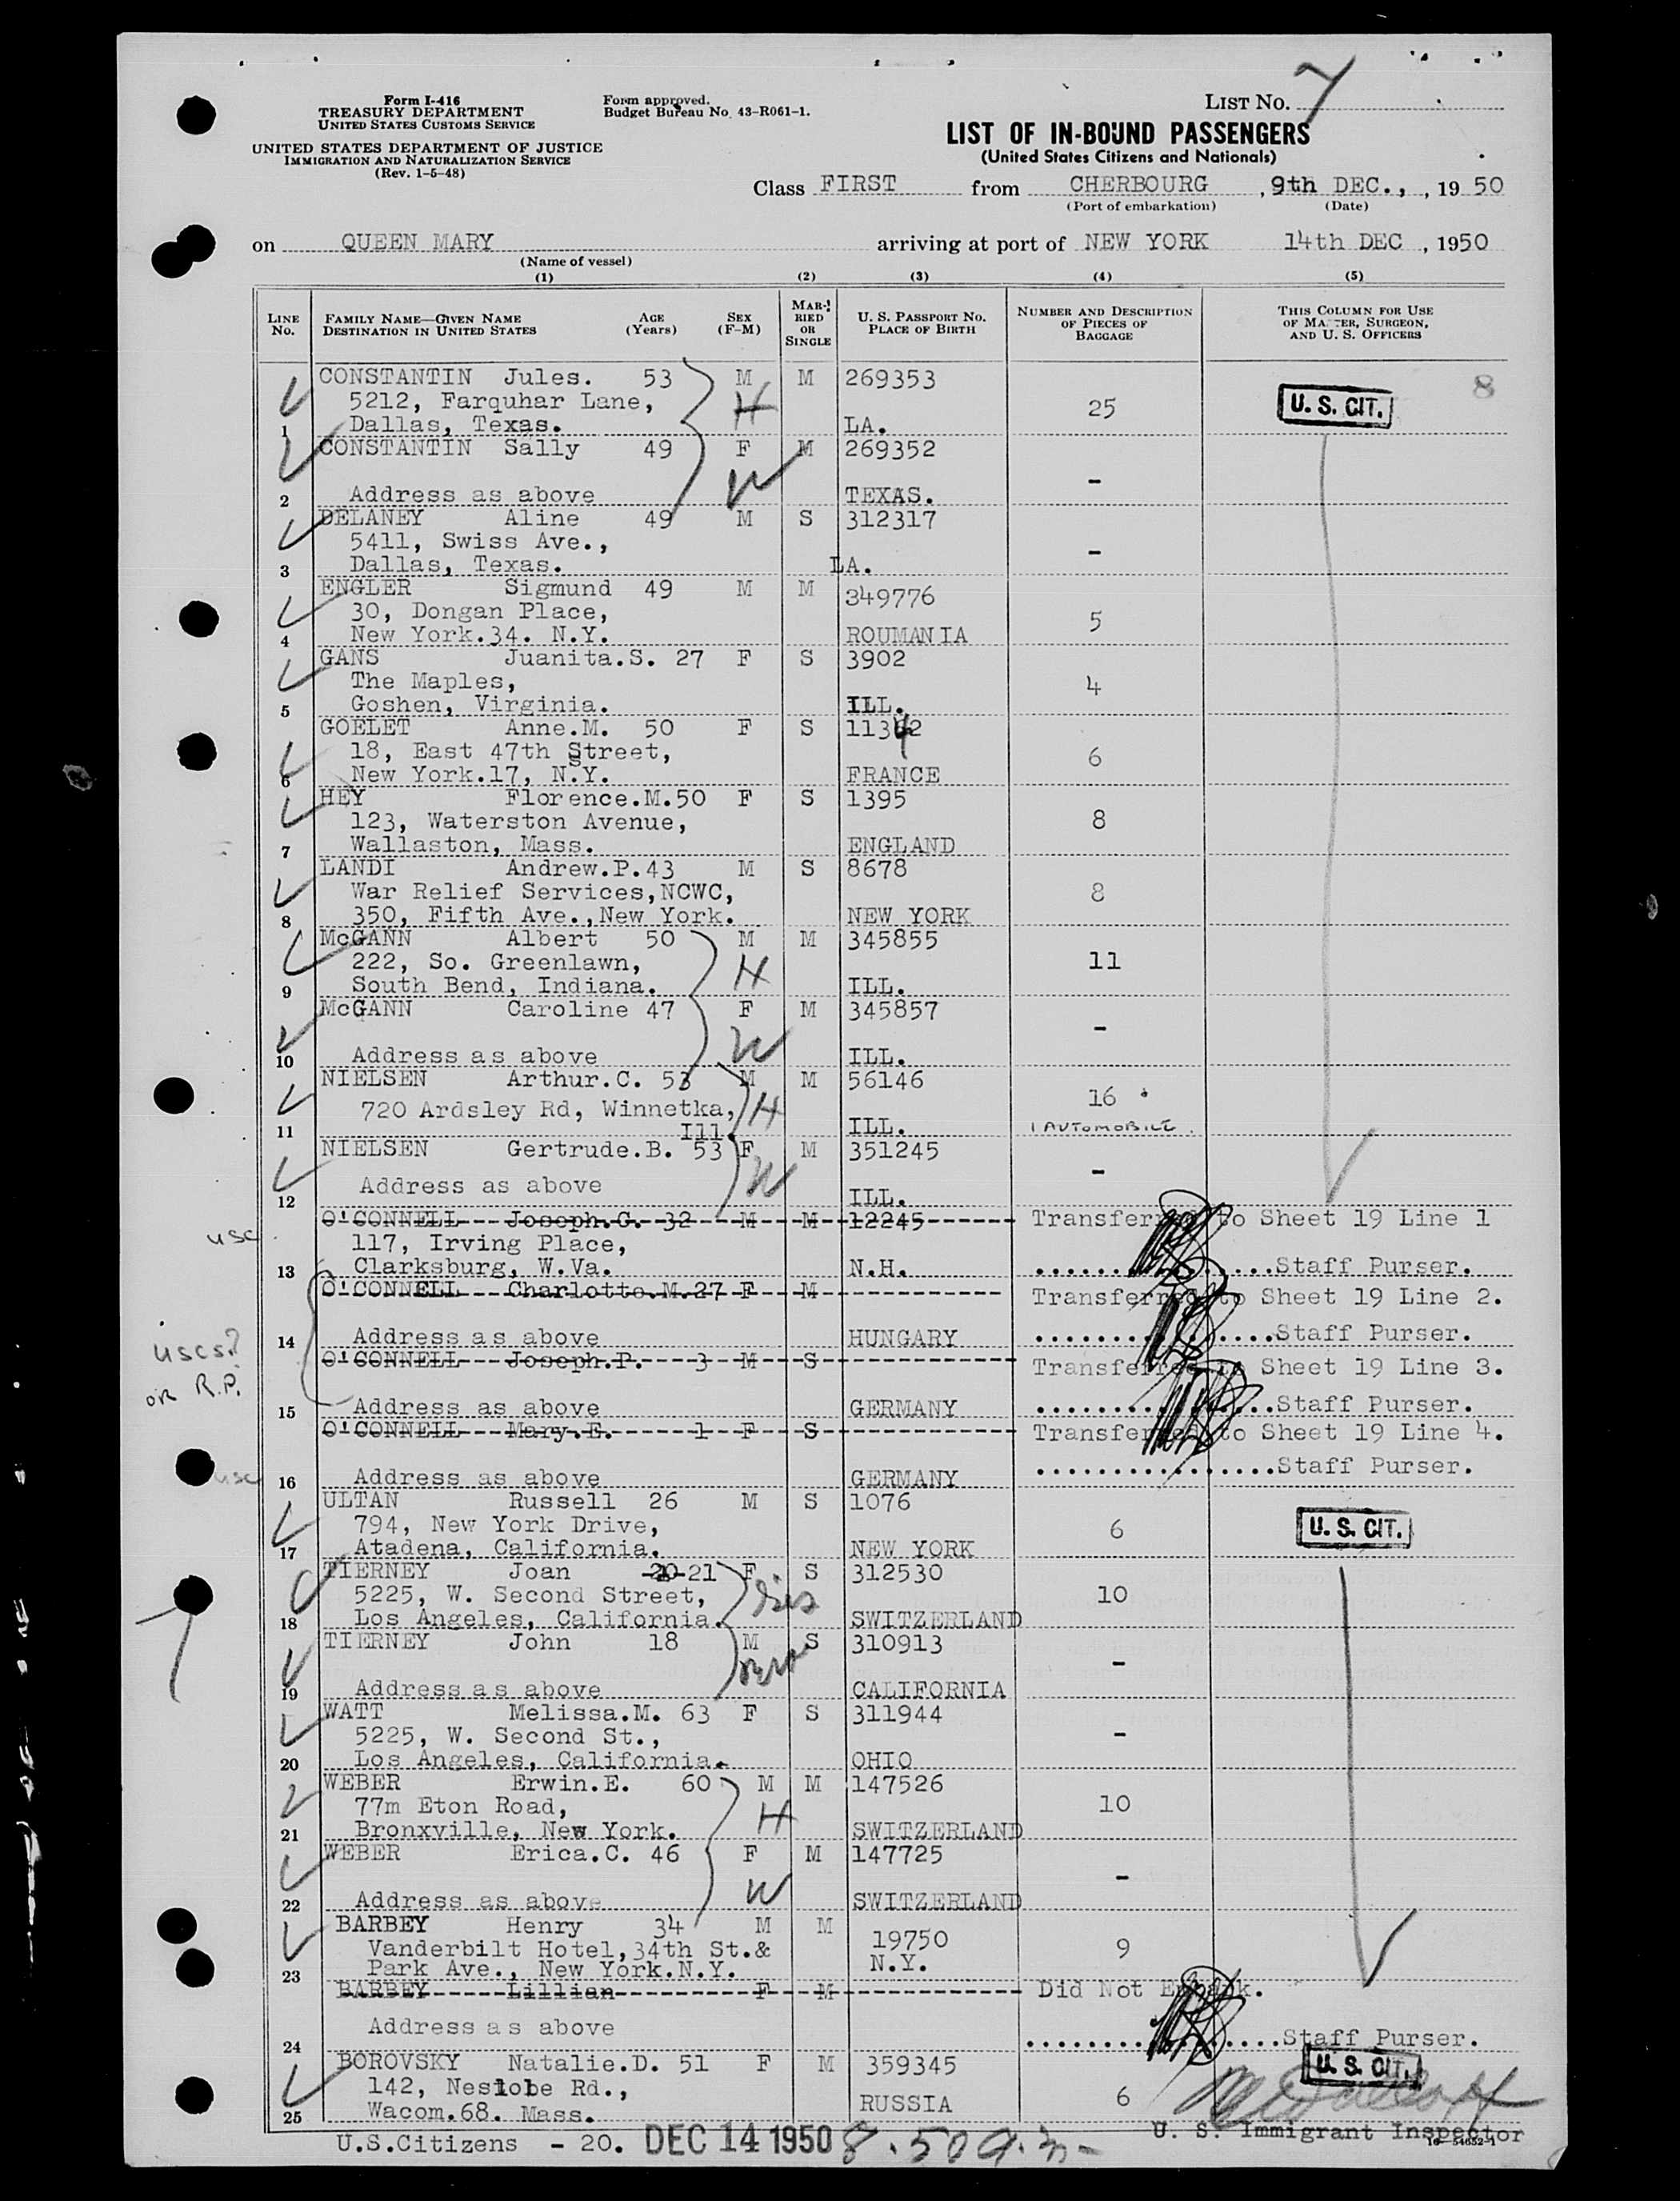 Form I-416
TREASURY DEPARTMENT
UNITED STATES CUSTOMS SERVICE
UNITED STATES DEPARTMENT OF JUSTICE
IMMIGRATION AND NATURALIZATION SERVICE
(Rev. 1-5-48)
Form approved.
Budget Bureau No. 43-R061-1.
LIST No. 7
LIST OF IN-BOUND PASSENGERS
(United States Citizens and Nationals)
Class FIRST from CHERBOURG, 9th DEC., , 19 50
(Port of embarkation) (Date)
on QUEEN MARY arriving at port of NEW YORK 14th DEC , 1950
(Name of vessel)
(1) (2) (3) (4) (5)
LINE No. FAMILY NAME—GIVEN NAME DESTINATION IN UNITED STATES AGE (Years) SEX (F-M) MARRIED OR SINGLE U. S. PASSPORT No. PLACE OF BIRTH NUMBER AND DESCRIPTION OF PIECES OF BAGGAGE THIS COLUMN FOR USE OF MASTER, SURGEON, AND U. S. OFFICERS
CONSTANTIN Jules. 53 M M 269353 8
5212, Farquhar Lane, H 25 U. S. CIT.
1 Dallas, Texas. LA.
CONSTANTIN Sally 49 F M 269352
W -
2 Address as above TEXAS.
DELANEY Aline 49 M S 312317
5411, Swiss Ave., -
3 Dallas, Texas. LA.
ENGLER Sigmund 49 M M 349776
30, Dongan Place, 5
4 New York.34. N.Y. ROUMANIA
GANS Juanita.S. 27 F S 3902
The Maples, 4
5 Goshen, Virginia. ILL.
GOELET Anne.M. 50 F S 11342
18, East 47th Street, 6
6 New York.17, N.Y. FRANCE
HEY Florence.M.50 F S 1395
123, Waterston Avenue, 8
7 Wallaston, Mass. ENGLAND
LANDI Andrew.P.43 M S 8678
War Relief Services,NCWC, 8
8 350, Fifth Ave.,New York. NEW YORK
McGANN Albert 50 M M 345855
222, So. Greenlawn, H 11
9 South Bend, Indiana. ILL.
McGANN Caroline 47 F M 345857
W -
10 Address as above ILL.
NIELSEN Arthur.C. 53 M M 56146
720 Ardsley Rd, Winnetka, H 16
11 Ill. ILL. 1 AUTOMOBILE.
NIELSEN Gertrude.B. 53 F M 351245
W -
12 Address as above ILL.
O'CONNELL Joseph.G. 32 M M 12245 Transferred to Sheet 19 Line 1
usc 117, Irving Place,
13 Clarksburg, W.Va. N.H. Staff Purser.
O'CONNELL Charlotte.M.27 F M Transferred to Sheet 19 Line 2.
14 Address as above HUNGARY Staff Purser.
uscs?
O'CONNELL Joseph.P. 3 M S Transferred to Sheet 19 Line 3.
or R.P.
15 Address as above GERMANY Staff Purser.
O'CONNELL Mary.E. 1 F S Transferred to Sheet 19 Line 4.
usc 16 Address as above GERMANY Staff Purser.
ULTAN Russell 26 M S 1076
794, New York Drive, 6 U. S. CIT.
17 Atadena, California. NEW YORK
TIERNEY Joan 20 21 F S 312530
5225, W. Second Street, 10
18 Los Angeles, California. SWITZERLAND
TIERNEY John 18 M S 310913
-
19 Address as above CALIFORNIA
WATT Melissa.M. 63 F S 311944
5225, W. Second St., -
20 Los Angeles, California. OHIO
WEBER Erwin.E. 60 M M 147526
77m Eton Road, H 10
21 Bronxville, New York. SWITZERLAND
WEBER Erica.C. 46 F M 147725
W -
22 Address as above SWITZERLAND
BARBEY Henry 34 M M 19750
Vanderbilt Hotel,34th St.& 9
23 Park Ave., New York.N.Y. N.Y.
BARBEY Lillian F M Did Not Embark.
Address as above
24 Staff Purser.
BOROVSKY Natalie.D. 51 F M 359345 U. S. CIT.
142, Neslobe Rd., 6
25 Wacom.68. Mass. RUSSIA
U.S.Citizens - 20. DEC 14 1950 8.50 a.m- U. S. Immigrant Inspector
16-54652-1